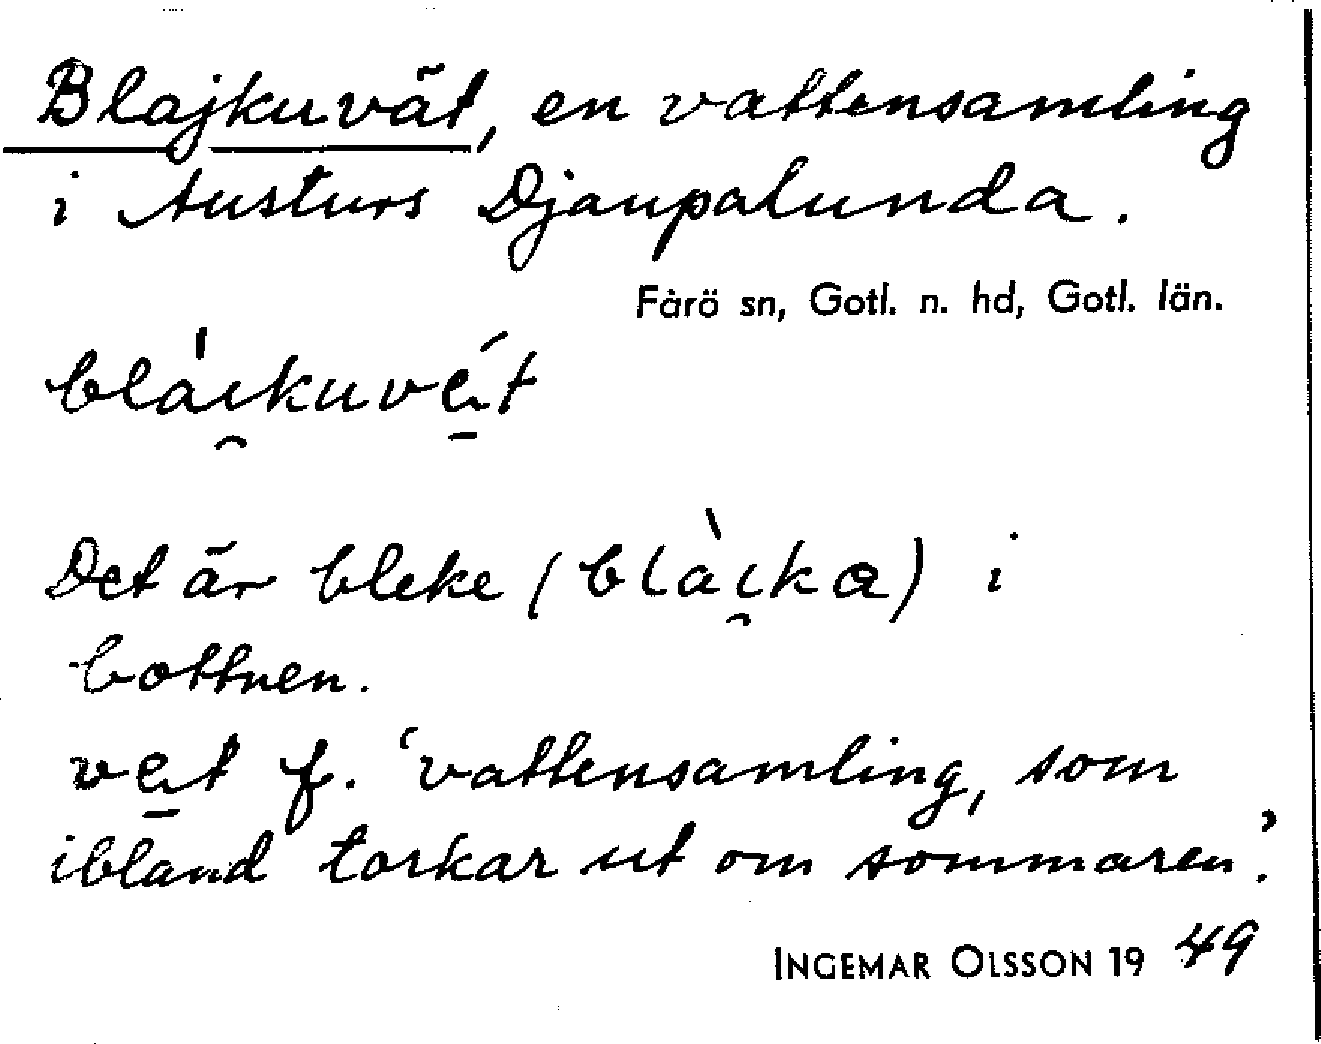 Blajkuvät, en vattensamling
i Austurs Djaupalunda.
Fårö sn, Gotl. n. hd, Gotl. län.
blá̀ı̯kuvä́t
Det är bleke (blàı̯ka) i
bottnen.
vä̱t f. 'vattensamling, som
ibland torkar ut om sommaren'.
INGEMAR OLSSON 19 49